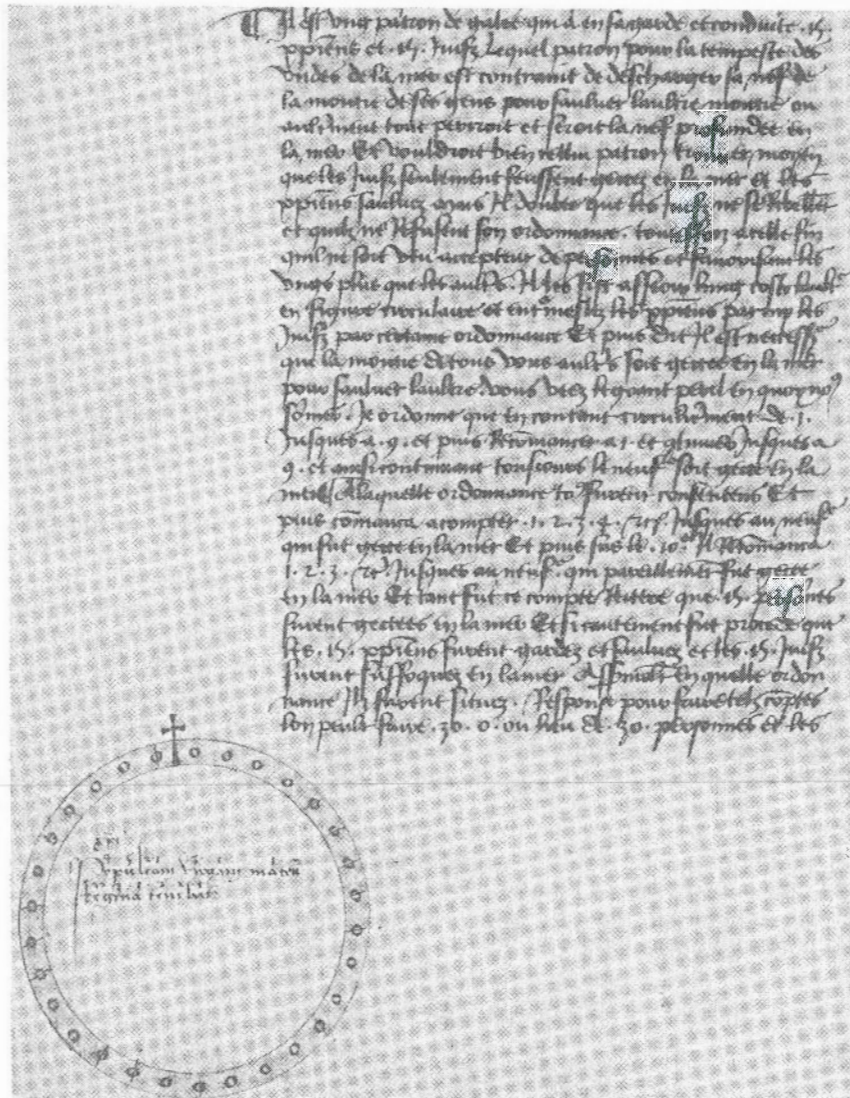 Il est ung patron de galee qui a en sa garde et conduite .15.
xpiens et .15. Juifz Lequel patron pour la tempeste des
undes de la mer est contraint de descharger sa nef de
la moitie de ses gens pour sauluer laultre moitie ou
aultment tout periroit et seroit la nef profundee en
la mer Et vouldroit bien cellui patron trouuer moyen
que les Juifz seulement feussent gectez en la mer et les
xpiens sauluez mais Il doubte que les Juifz ne se rebellent
et quilz ne refusent son ordonnance. toutesfoiz a celle fin
quil ne soit veu accepteur de persones et fauorisant les
ungs plus que les aults. Il les fist asseoir lung coste laultre
en figure circulaire et entremeslez les xpiens parmy les
Juifz par certaine ordonnance Et puis dit Il est necessre
que la moitie de tous vous aults soit gectee en la mer
pour sauluer laultre. Vous veez le grant peril en quoy no9
sommes. Je ordonne que en contant circulerement de .1.
Jusques a .9. et puis Recomancer a 1. et continuer Jusques a
9. et ainsi continuant tousiours le neufe soit gecte en la
mer A laquelle ordonnance to9 furent consentens Et
puis comanca a compter .1. 2. 3. 4. etc. Jusques au neufe
qui fut gecte en la mer Et puis sus le .10e. Il Recomanca
1. 2. 3. etc. Jusques au neufe. qui pareillement fut gecte
en la mer Et tant fut ce compte Reitere que .15. persones
furent gectees en la mer Et si cautement fut procede que
les .15. xpiens furent gardez et sauluez et les .15. Juifz
furent suffoquez en la mer Assauoir en quelle ordon
nance Ilz furent situez. Response pour faire telz comptes
lon peult faire .30. o. ou lieu de .30. personnes et les